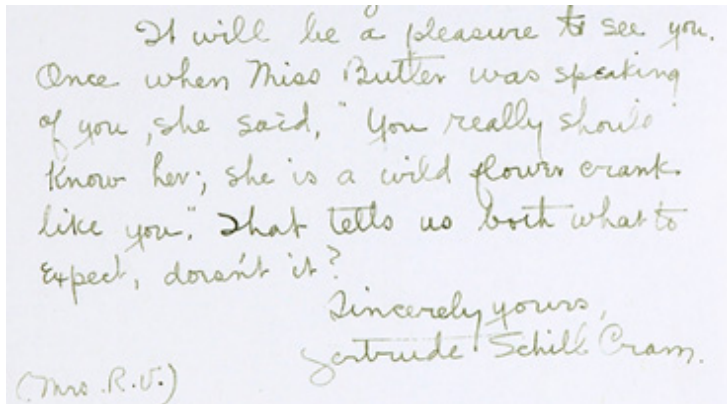 It will be a pleasure to see you.
Once when Miss Butler was speaking
of you, she said, "You really should
know her; she is a wild flower crank
like you". That tells us both what to
expect, doesn't it?
Sincerely yours,
Gertrude Schill Cram.
(Mrs. R.V.)